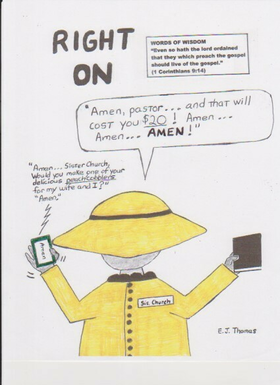 RIGHT
ON
WORDS OF WISDOM
"Even so hath the lord ordained
that they which preach the gospel
should live of the gospel."
(1 Corinthians 9:14)
"Amen, pastor... and that will
cost you $20! Amen...
Amen... AMEN!"
"Amen... Sister Church,
Would you make one of your
delicious peach cobblers
for my wife and I?"
"Amen."
Amen
Sis. Church
E.J. Thomas